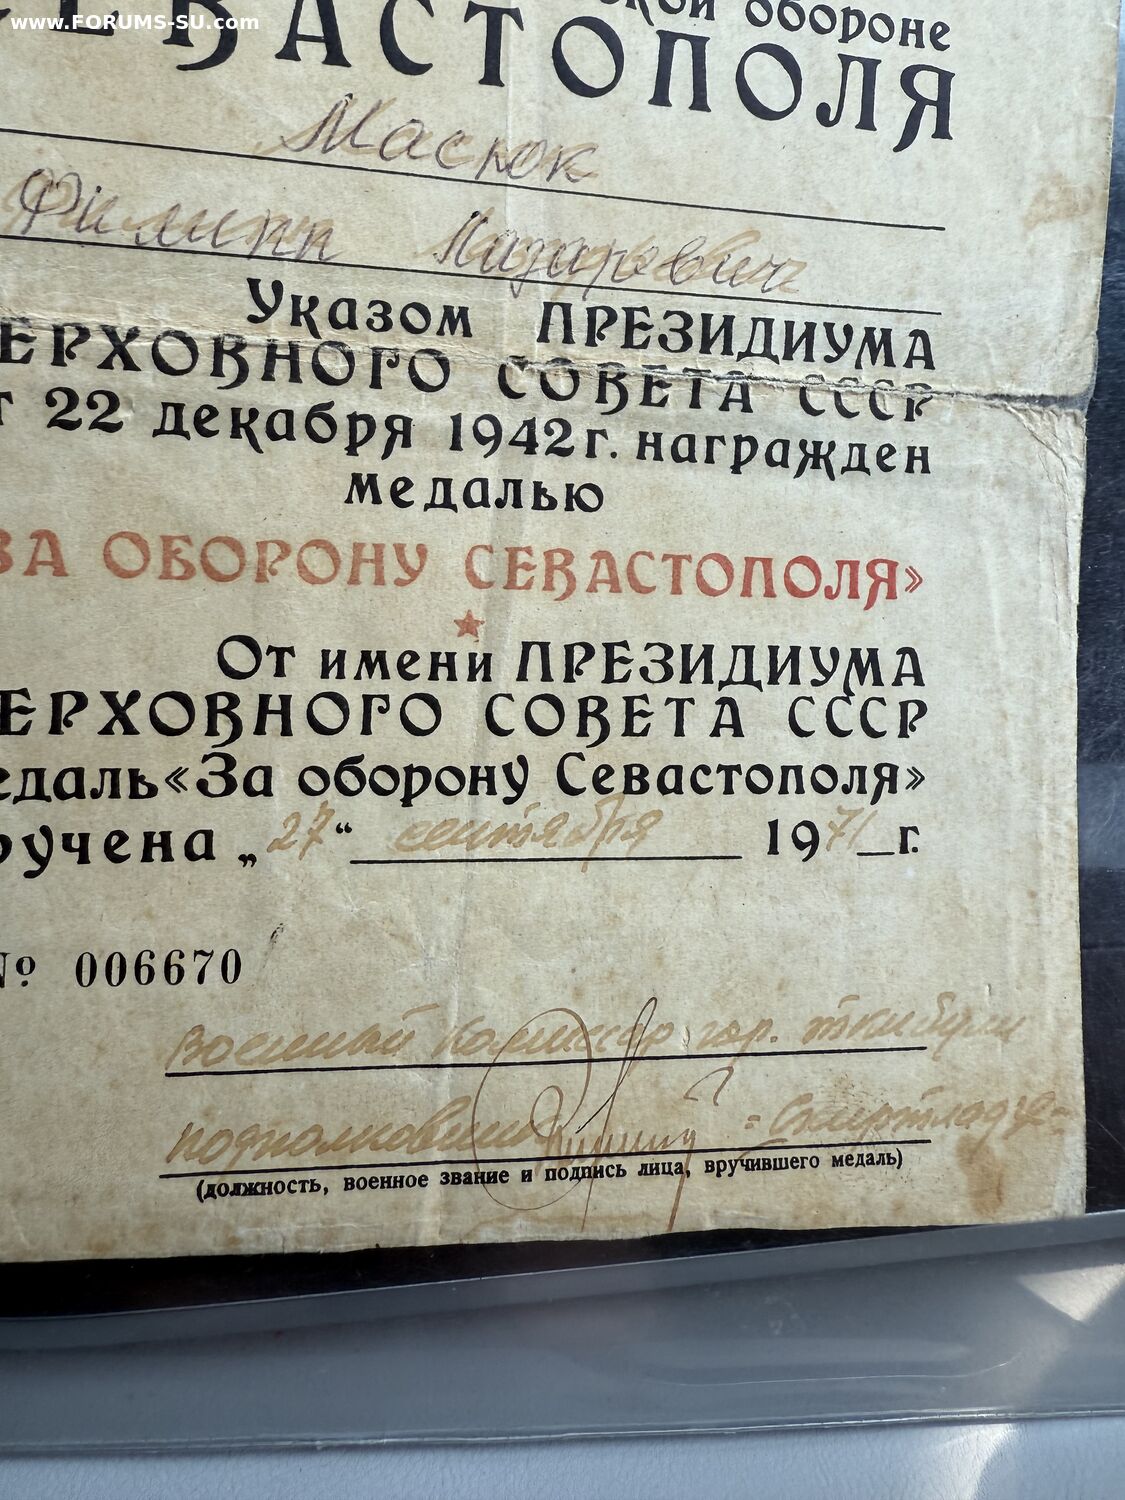 www.FORUMS-SU.com
ской обороне
СЕВАСТОПОЛЯ
Масюк
Филипп Назаревич
Указом ПРЕЗИДИУМА
ЕРХОВНОГО СОВЕТА СССР
т 22 декабря 1942 г. награжден
медалью
ЗА ОБОРОНУ СЕВАСТОПОЛЯ»
От имени ПРЕЗИДИУМА
ЕРХОВНОГО СОВЕТА СССР
едаль «За оборону Севастополя»
ручена „27“ сентября 1971 г.
№ 006670
Военный Комиссар гор. Ткибули
подполковник
(должность, военное звание и подпись лица, вручившего медаль)